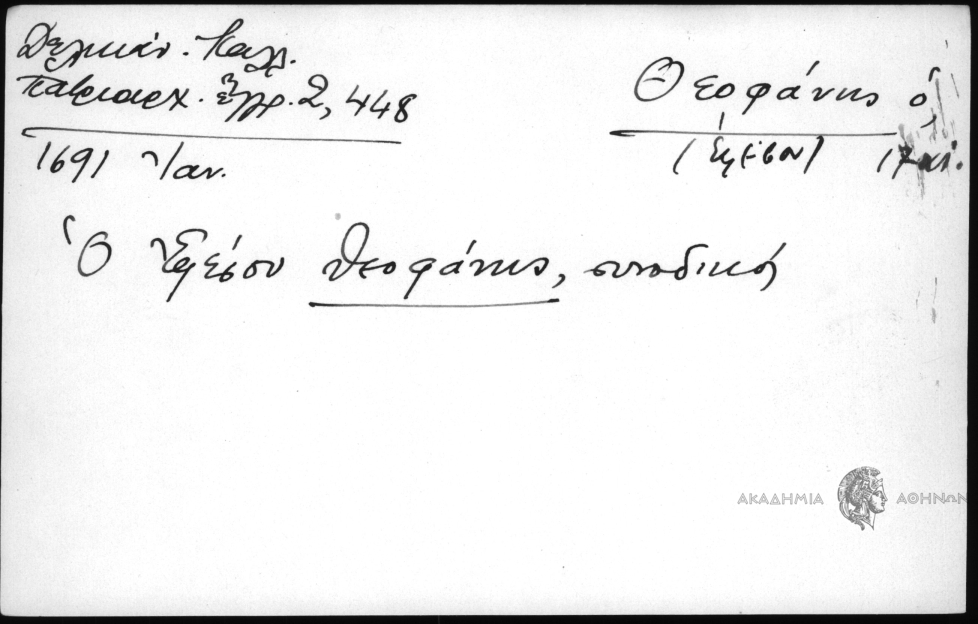 Δελικάν. Καλλ.
Πατριαρχ. ἔγγρ. 2, 448
1691 Ἰαν.
Θεοφάνης ὁ,
(Ἐφέσου) 17 αἰ.
Ὁ Ἐφέσου Θεοφάνης, συνοδικός
ΑΚΑΔΗΜΙΑ ΑΘΗΝΩΝ